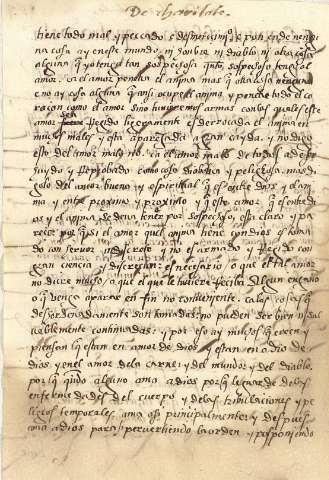 De charitate
tiene todo mal y peccado, e despues ... pon ende ninguna
na cosa ay en este mundo, ni sombra ni diablo ni otra cosa
alguna q̃ yo tenga tan sospechosa qto. sospecho tengo al
amor. ca el amor penetra el anima mas q̃ otra cosa ninguna
e no ay cosa alguna q̃ ansi ocupe el anima y penetre todo el co
raçon como el amor sino tuvieremos armas con las quales este
amor sea regido ligeramente es derrocada el anima en
muchos males y esta aparejada a gran cayda. y no digo
esto del amor malo no. ca el amor malo de todos a de ser
huydo y reprobado como cosa diabolica y peligrosa, mas di
golo del amor bueno y espiritual q̃ es entre dios y el ani
ma y entre proximo y proximo y q̃ este amor q̃ es entre di
os y el anima se deva tener por sospechoso, esta claro y pa
rece por q̃ si el amor quel anima tiene con dios es toma
do con fervor indiscreto y no es armado y regido con
gran ciencia y discrecion es necesario o que el tal amor
no dure mucho o que el que le tuviere reciba algun engaño
o q̃ venga a parar en fin no conveniente. ca las cosas q̃
desordenadamente son tomadas no pueden ser bien ni salu
dablemente continuadas: y por eso ay muchos q̃ creen y
piensan q̃ estan en amor de dios y estan en odio de
dios y en el amor de la carne y del mundo y del diablo.
por q̃ quando alguno ama a dios por q̃ le guarde de las
enfermedades del cuerpo y de las tribulaciones y pe
ligros temporales, ama a si principalmente y despues
ama a dios para si pervertiendo la orden y posponiendo